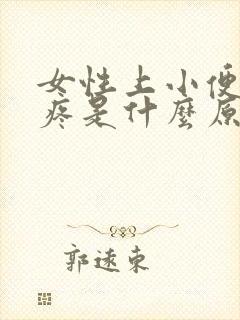 女性上小便
疼是什麼原
郭遠東